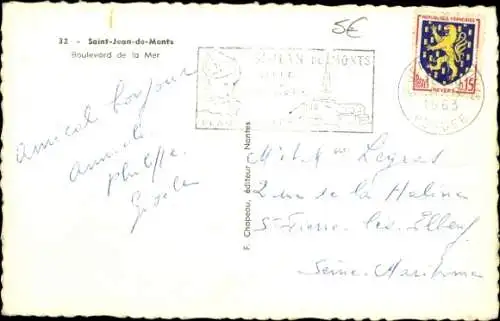 5€
32 - Saint-Jean-de-Monts
Boulevard de la Mer
ST JEAN DE MONTS
REPUBLIQUE FRANÇAISE
POSTES 0,15
NEVERS
1963
VENDEE
Amical bonjour
Annick
Philippe
Gisèle
F. Chapeau, éditeur, Nantes
M et Mme Legras
2 rue de la Haline
St Pierre les Elbeuf
Seine Maritime